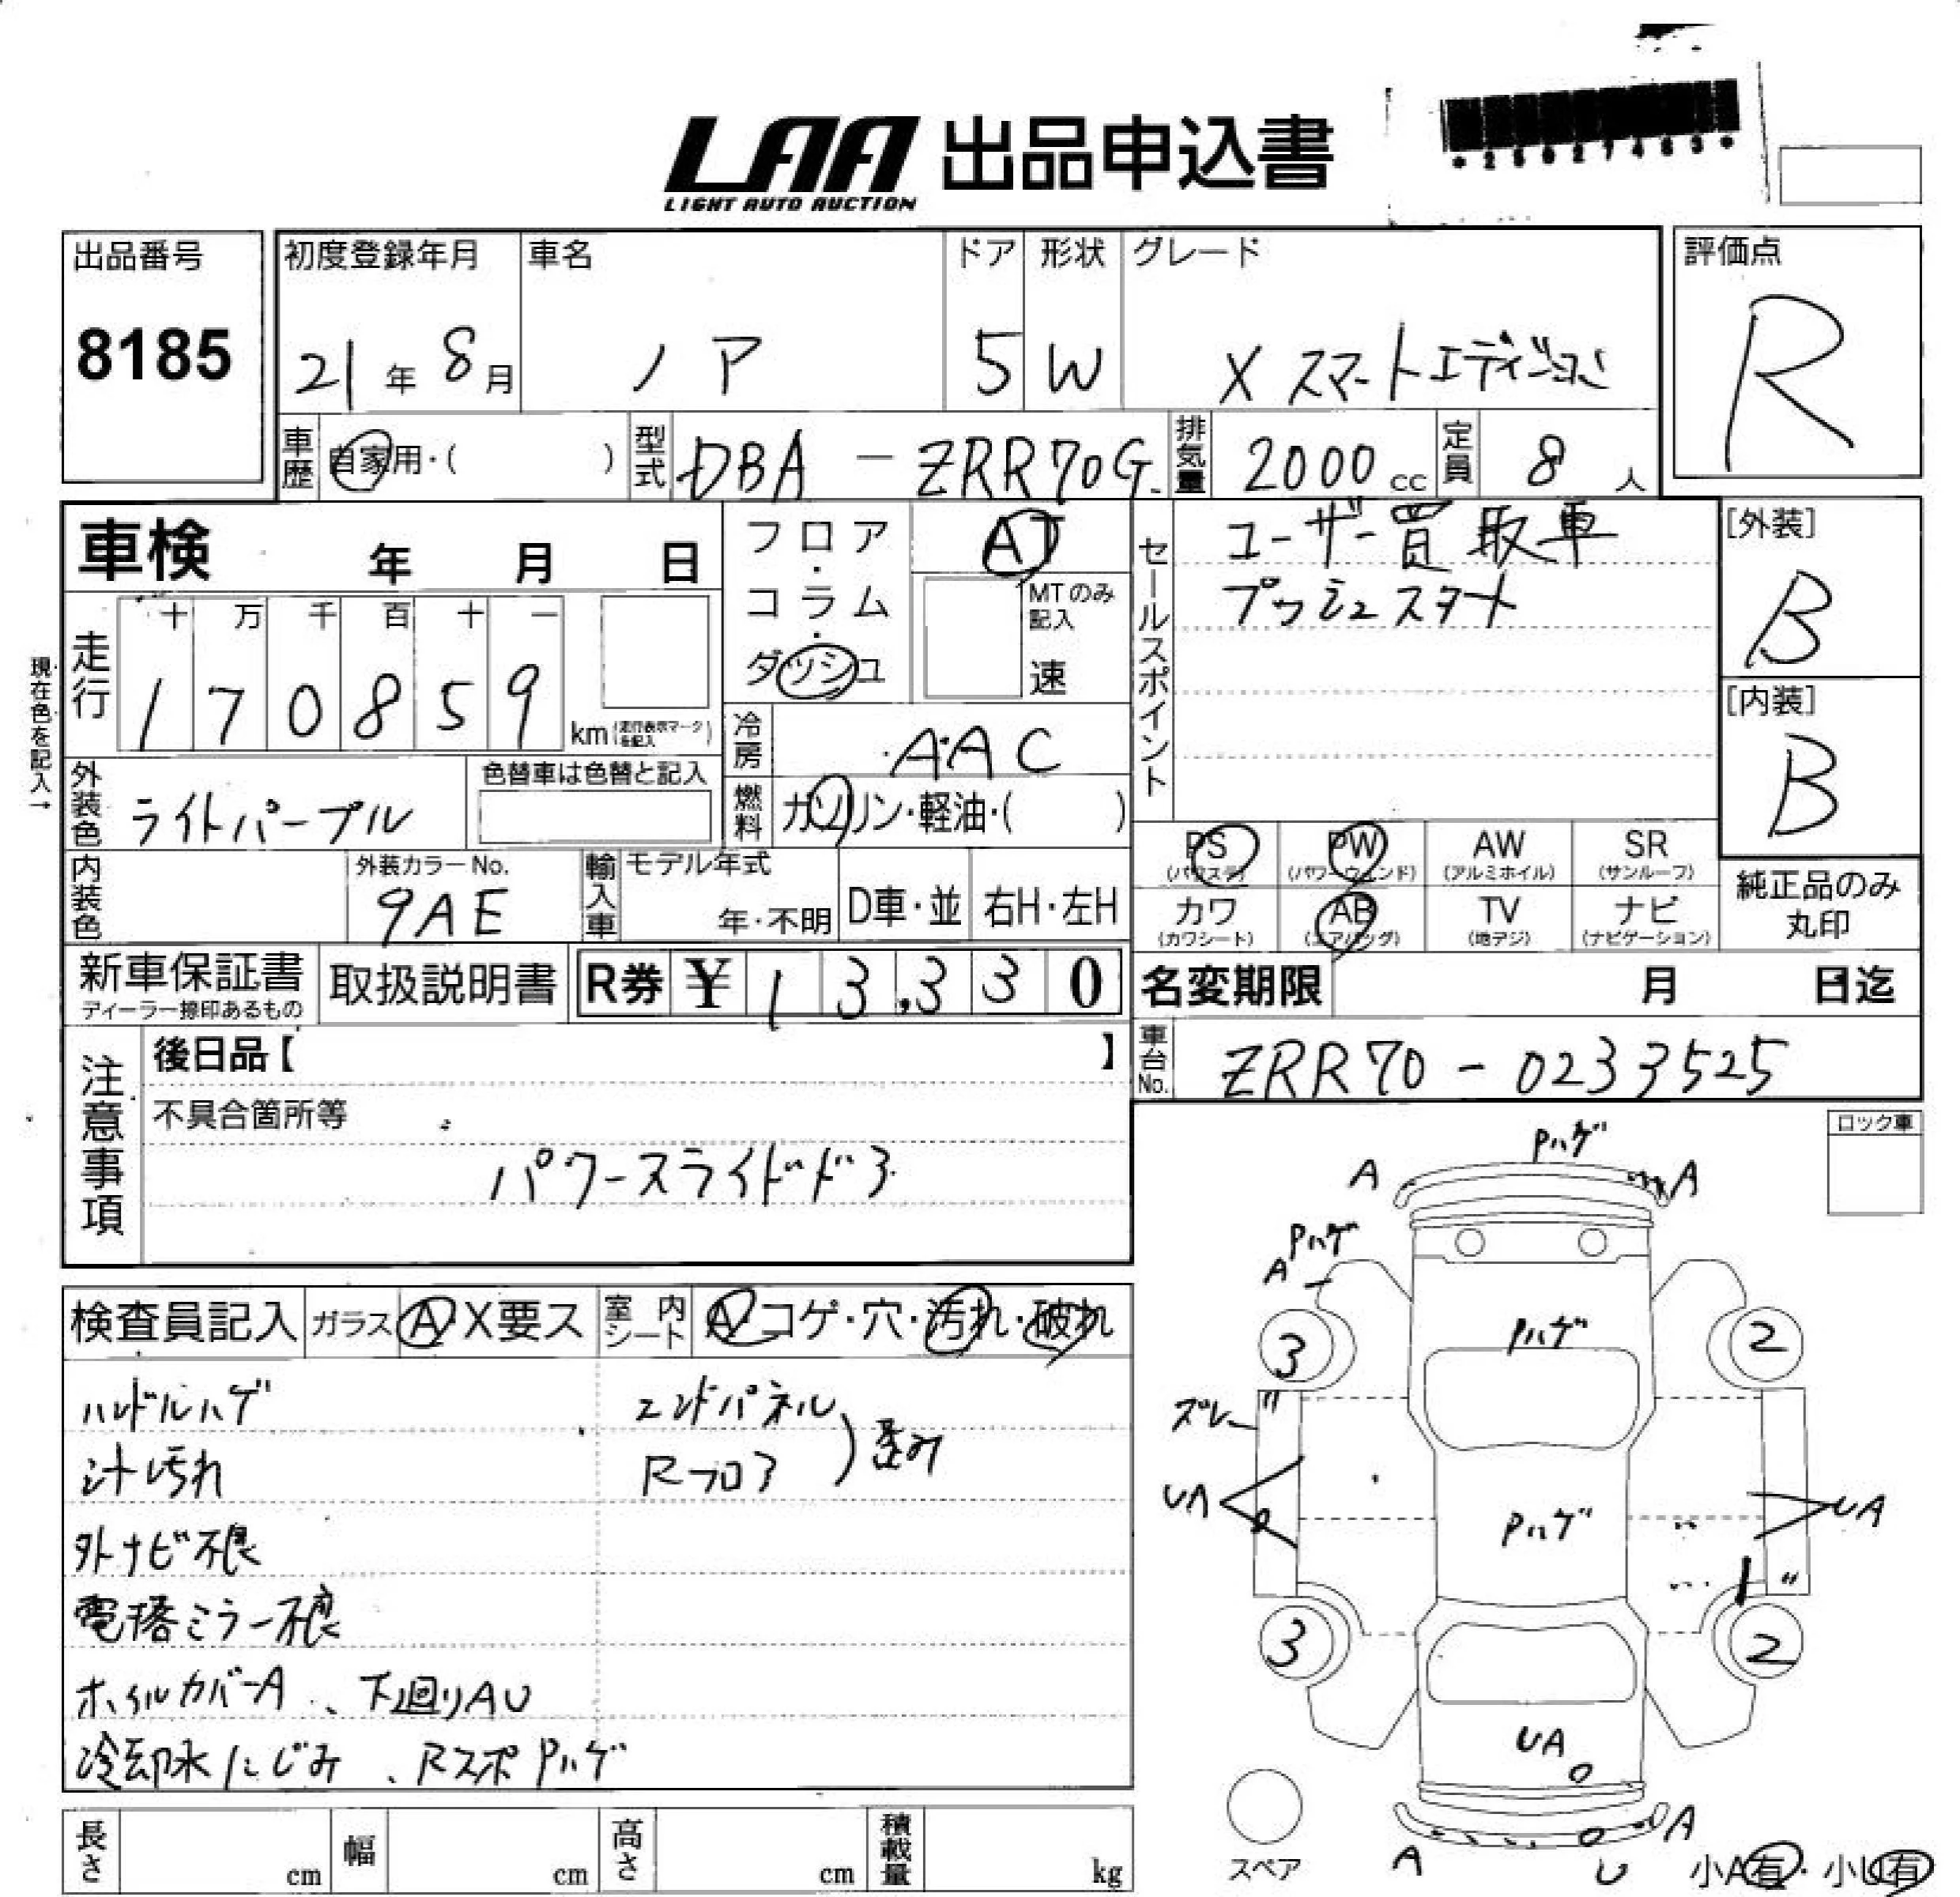 LAA 出品申込書
LIGHT AUTO AUCTION
*25027483*
出品番号
8185
初度登録年月
21年 8月
車名
ノア
ドア
5
形状
W
グレード
X スマートエディション
評価点
R
車歴
自家用・( )
型式
DBA - ZRR70G
排気量
2000 cc
定員
8 人
車検 年 月 日
フロア・コラム・ダッシュ
AT
MTのみ記入
速
セールスポイント
ユーザー買取車
プッシュスタート
[外装]
B
[内装]
B
現在色を記入→
走行
十 万 千 百 十 一
1 7 0 8 5 9
km (走行表示マークを記入)
冷房
AAC
燃料
ガソリン・軽油・( )
外装色
ライトパープル
色替車は色替と記入
内装色
外装カラーNo.
9AE
輸入車
モデル年式
年・不明
D車・並
右H・左H
PS (パワステ)
PW (パワーウィンド)
AW (アルミホイル)
SR (サンルーフ)
カワ (カワシート)
AB (エアバッグ)
TV (地デジ)
ナビ (ナビゲーション)
純正品のみ丸印
新車保証書
ディーラー捺印あるもの
取扱説明書
R券 ¥ 1 3,3 3 0
名変期限 月 日迄
車台No.
ZRR70 - 0233525
注意事項
後日品【 】
不具合箇所等
パワースライドドア
ロック車
検査員記入
ガラス
A X要ス
室内シート
A コゲ・穴・汚れ・破れ
ハンドルハゲ
シート汚れ
外ナビ不良
電格ミラー不良
ホイルカバーA、下廻りAU
冷却水にじみ、Rスポ Pハゲ
エンドパネル
Rフロア
歪み
Pハゲ
A
A
Pハゲ
A
Pハゲ
3
2
ズレ
〃
UA
Pハゲ
UA
〃
3
2
UA
A
A
U
スペア
小A有・小U有
長さ cm
幅 cm
高さ cm
積載量 kg